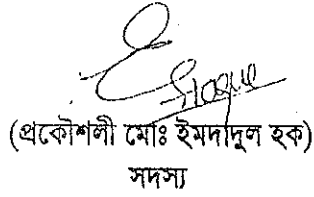 (প্রকৌশলী মোঃ ইমদাদুল হক)
সদস্য